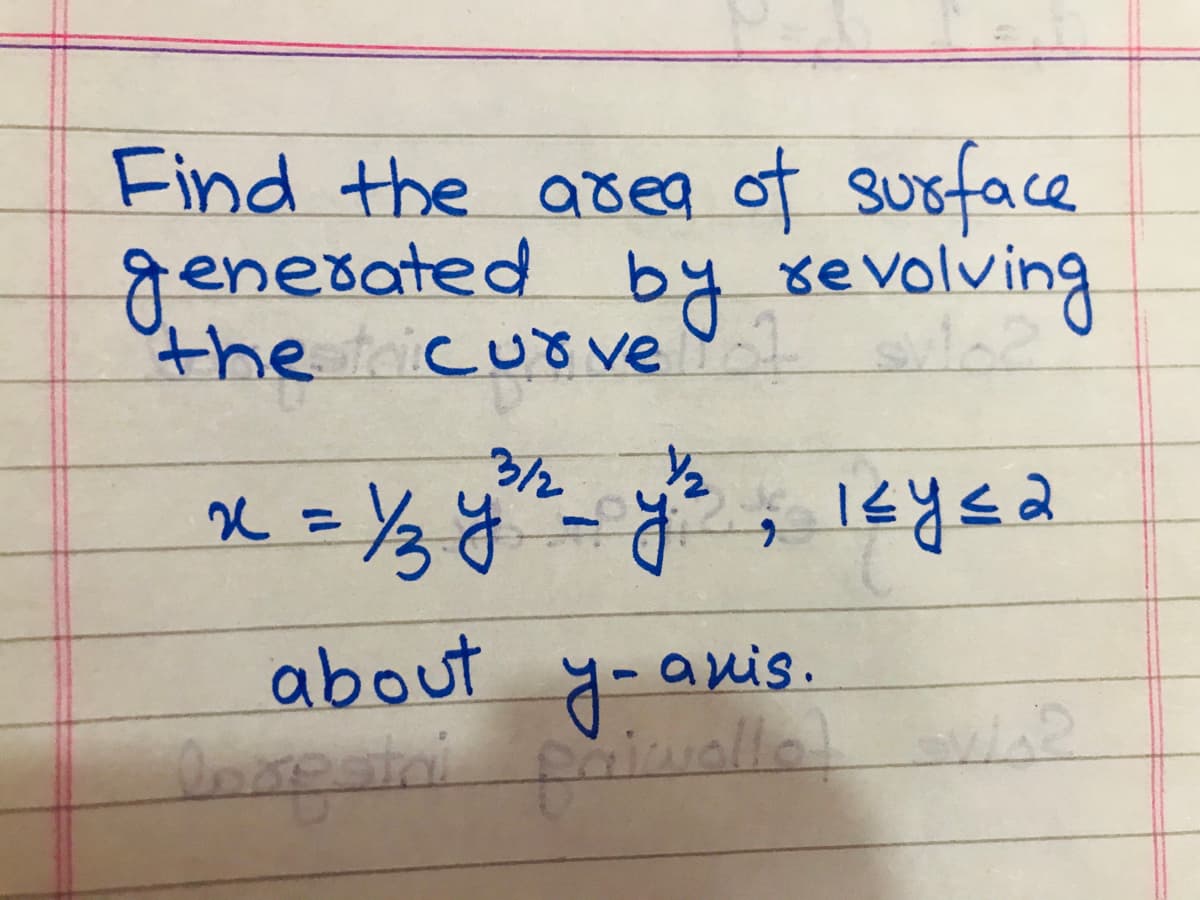 Find the area of surface
generated by revolving
the curve
x = 1/3 y^3/2 - y^1/2 ; 1≤y≤2
about y-axis.